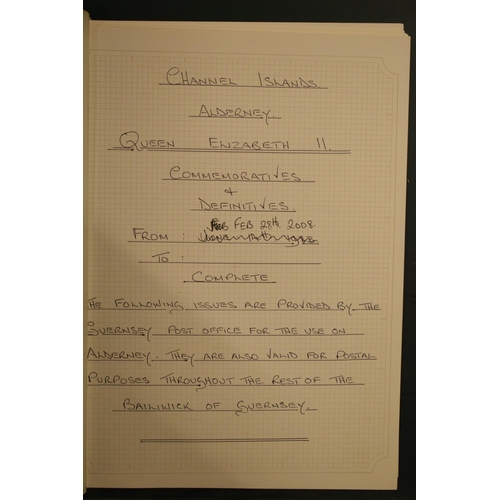 CHANNEL ISLANDS.
ALDERNEY.
QUEEN ELIZABETH II.
COMMEMORATIVES
+
DEFINITIVES.
FEB 28th 2008.
FROM :
TO :
COMPLETE
THE FOLLOWING ISSUES ARE PROVIDED BY THE
GUERNSEY POST OFFICE FOR THE USE ON
ALDERNEY. THEY ARE ALSO VALID FOR POSTAL
PURPOSES THROUGHOUT THE REST OF THE
BAILIWICK OF GUERNSEY.